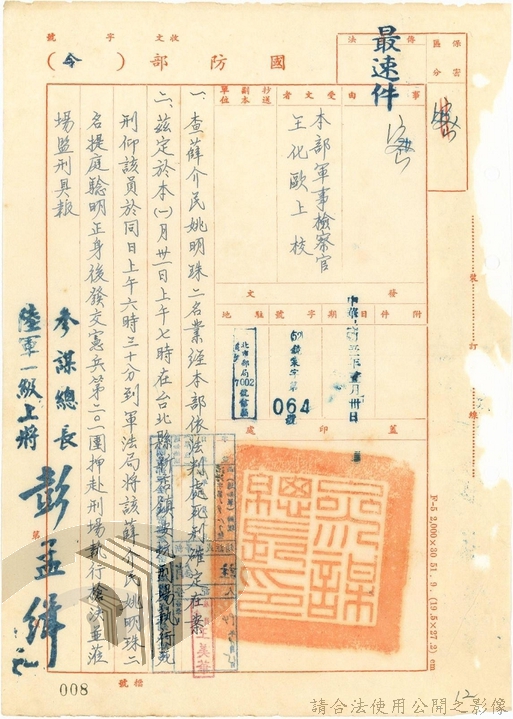 國防部(令)
收文 字 號
保密區分
密
傳法
最速件
密
事由
受文者
本部軍事檢察官
王化歐上校
抄送副本單位
發文
附件
日期
中華民國五十二年一月卅日
字號
064號
駐地
北市郵局
7002
號信箱
蓋印處
參謀總長印
一、查薛介民姚明珠二名業經本部依法判處死刑確定在案
二、茲定於本(一)月卅一日上午七時在台北縣新店鎮安坑刑場執行死
刑仰該員於同日上午六時三十分到軍法局將該薛介民姚明珠二
名提庭驗明正身後發交憲兵第二〇一團押赴刑場執行槍決並蒞
場監刑具報
參謀總長
陸軍一級上將
彭孟緝
裝 訂 線
第
008
號
F-5 2,000×30 51. 9. (19.5×27.2) cm
12
請合法使用公開之影像